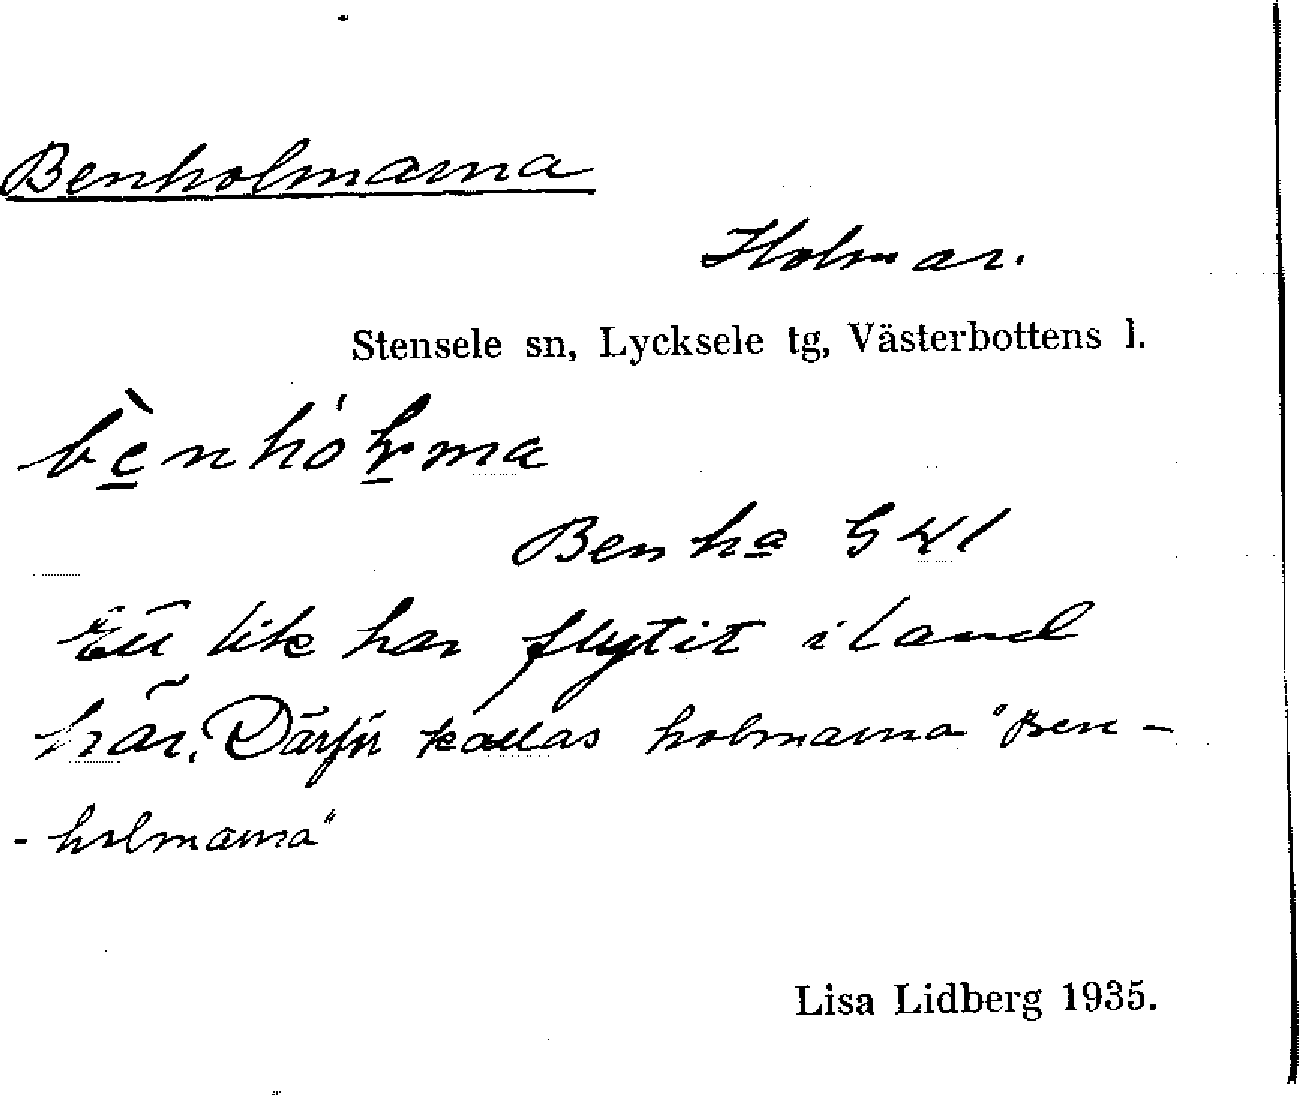 Benholmarna
Holmar.
Stensele sn, Lycksele tg, Västerbottens l.
Benha GKl
Ett lik har flytit i land
här. Därför kallas holmarna "Ben-
-holmarna"
Lisa Lidberg 1935.